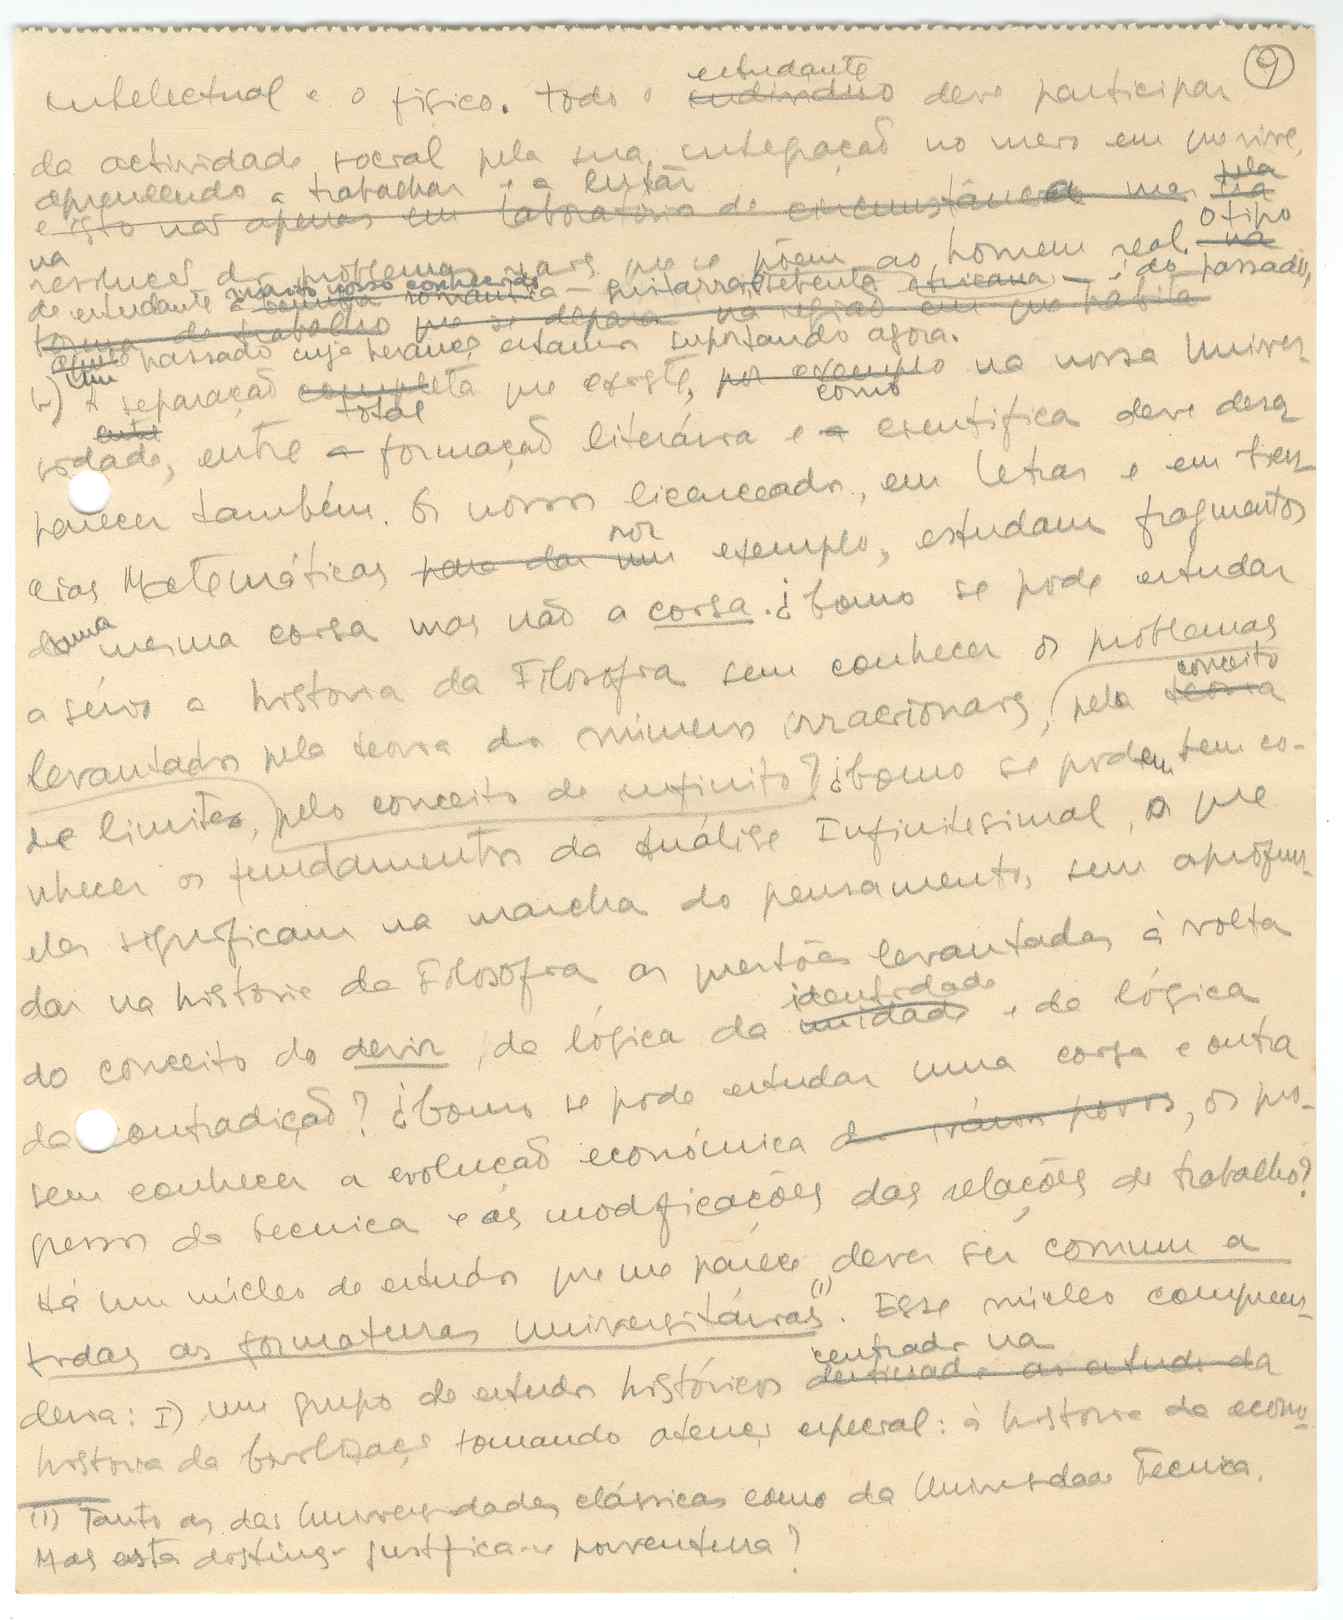 9
estudante
intelectual e o físico. Todo o individuo deve participar
da actividade social pela sua integração no meio em que vive,
aprendendo a trabalhar e a lutar
e isto não apenas em laboratório de circunstância mas
pela
na
o tipo
resolução dos problemas reais que se põem ao homem real. na
de estudante romântica — guitarra — é do passado,
forma de trabalho que se depara na região em que habita
um passado cuja herança estamos suportando agora.
b) A separação completa que existe, por exemplo na nossa Univer-
total
como
entre
sidade, entre a formação literária e a científica deve desa-
parecer também. Os nossos licenciados, em letras e em Ciên-
por
cias Matemáticas para dar um exemplo, estudam fragmentos
duma mesma coisa mas não a coisa. ¿Como se pode estudar
a sério a história da Filosofia sem conhecer os problemas
conceito
levantados pela teoria dos números irracionais, pelo teoria
de limites, pelo conceito de infinito? ¿Como se podem, sem co-
nhecer os fundamentos da Análise Infinitesimal, o que
eles significam na marcha do pensamento, sem aprofun-
dar na história da Filosofia as questões levantadas à volta
identidade
do conceito do devir, da lógica da unidade e da lógica
da contradição? ¿Como se pode estudar uma coisa e outra
sem conhecer a evolução económica dos vários povos, os pro-
gressos da técnica e as modificações das relações de trabalho?
Há um núcleo de estudos que me parece dever ser comum a
todas as formaturas universitárias (1). Esse núcleo compreen-
centrado na
deria: I) um grupo de estudos históricos destinado ao estudo da
história da Civilização tomando atenção especial: à história da econo-
(1) Tanto as das Universidades clássicas como da Universidade Técnica.
Mas esta distinção justifica-se porventura?